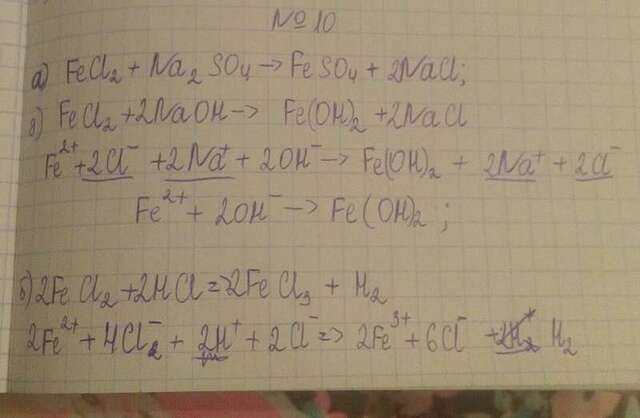 № 10
а) FeCl₂ + Na₂SO₄ → FeSO₄ + 2NaCl;
в) FeCl₂ + 2NaOH → Fe(OH)₂ + 2NaCl
Fe²⁺ + 2Cl⁻ + 2Na⁺ + 2OH⁻ → Fe(OH)₂ + 2Na⁺ + 2Cl⁻
Fe²⁺ + 2OH⁻ → Fe(OH)₂ ;
б) 2FeCl₂ + 2HCl => 2FeCl₃ + H₂
2Fe²⁺ + 4Cl₂⁻ + 2H⁺ + 2Cl⁻ => 2Fe³⁺ + 6Cl⁻ + H₂